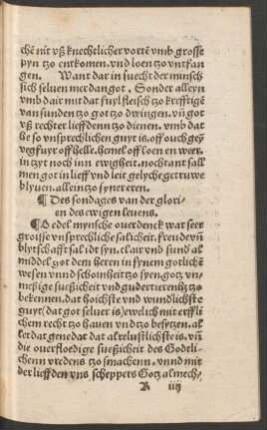 chē nit vß knechtlicher vortē vmb grosse
pyn tzo entkomen. vnd loen tzo vntfan
gen. Want dar in suecht der minsch
sich seluen mer dan got. Sonder alleyn
vmb dair mit dat fuyl fleisch tzo kreffigē
van sunden tzo got tzo dwingen. vñ got
vß rechter lieff denn tzo dienen. vmb dat
he so vnsprechlichen guyt is. off ouch geē
vegfuyr off helle. hemel off loen en wer.
in tzyt noch inn ewigheit. nochtant sall
men got in lieff vnd leit gelyche getruwe
blyuen. allein tzo synet eren.
¶ Des sondages van der glori-
en des ewigen leuens.
¶ O edel mynsche ouerdenck wat seer
groisse vnsprechliche salicheit. freude vñ
blytschafft sal idt syn. clair vnd sund' al
middel got den heren in synem gotlichē
wesen vnnd schoinheit tzo syen. gotz vn-
meßige sueßicheit vnd guedertierenh; tzo
bekennen. dat hoichste vnd wundlichste
guyt (dat got seluer is) ewelich mit erffli
chem recht tzo hauen vnd tzo besytzen. al
let dat genedat dat al relustlichste is. vñ
die ouerfloedige sueßicheit des Godtli-
chenn vredens tzo smachenn. vnnd mit
der lieff den vns scheppers Gotz almech/
iiij